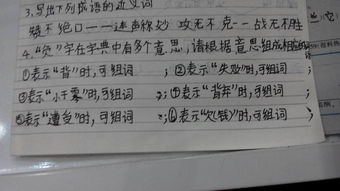 3.写出下列成语的近义词
赞不绝口——连声称妙 攻无不克——战无不胜
4."负"字在字典中有多个意思,请根据意思组成相应的
①表示"背"时,可组词 ; ②表示"失败"时,可组词 ;
③表示"小于零"时,可组词 ; ④表示"背弃"时,可组词 ;
⑤表示"遭受"时,可组词 ; ⑥表示"欠(钱)"时,可组词 ;